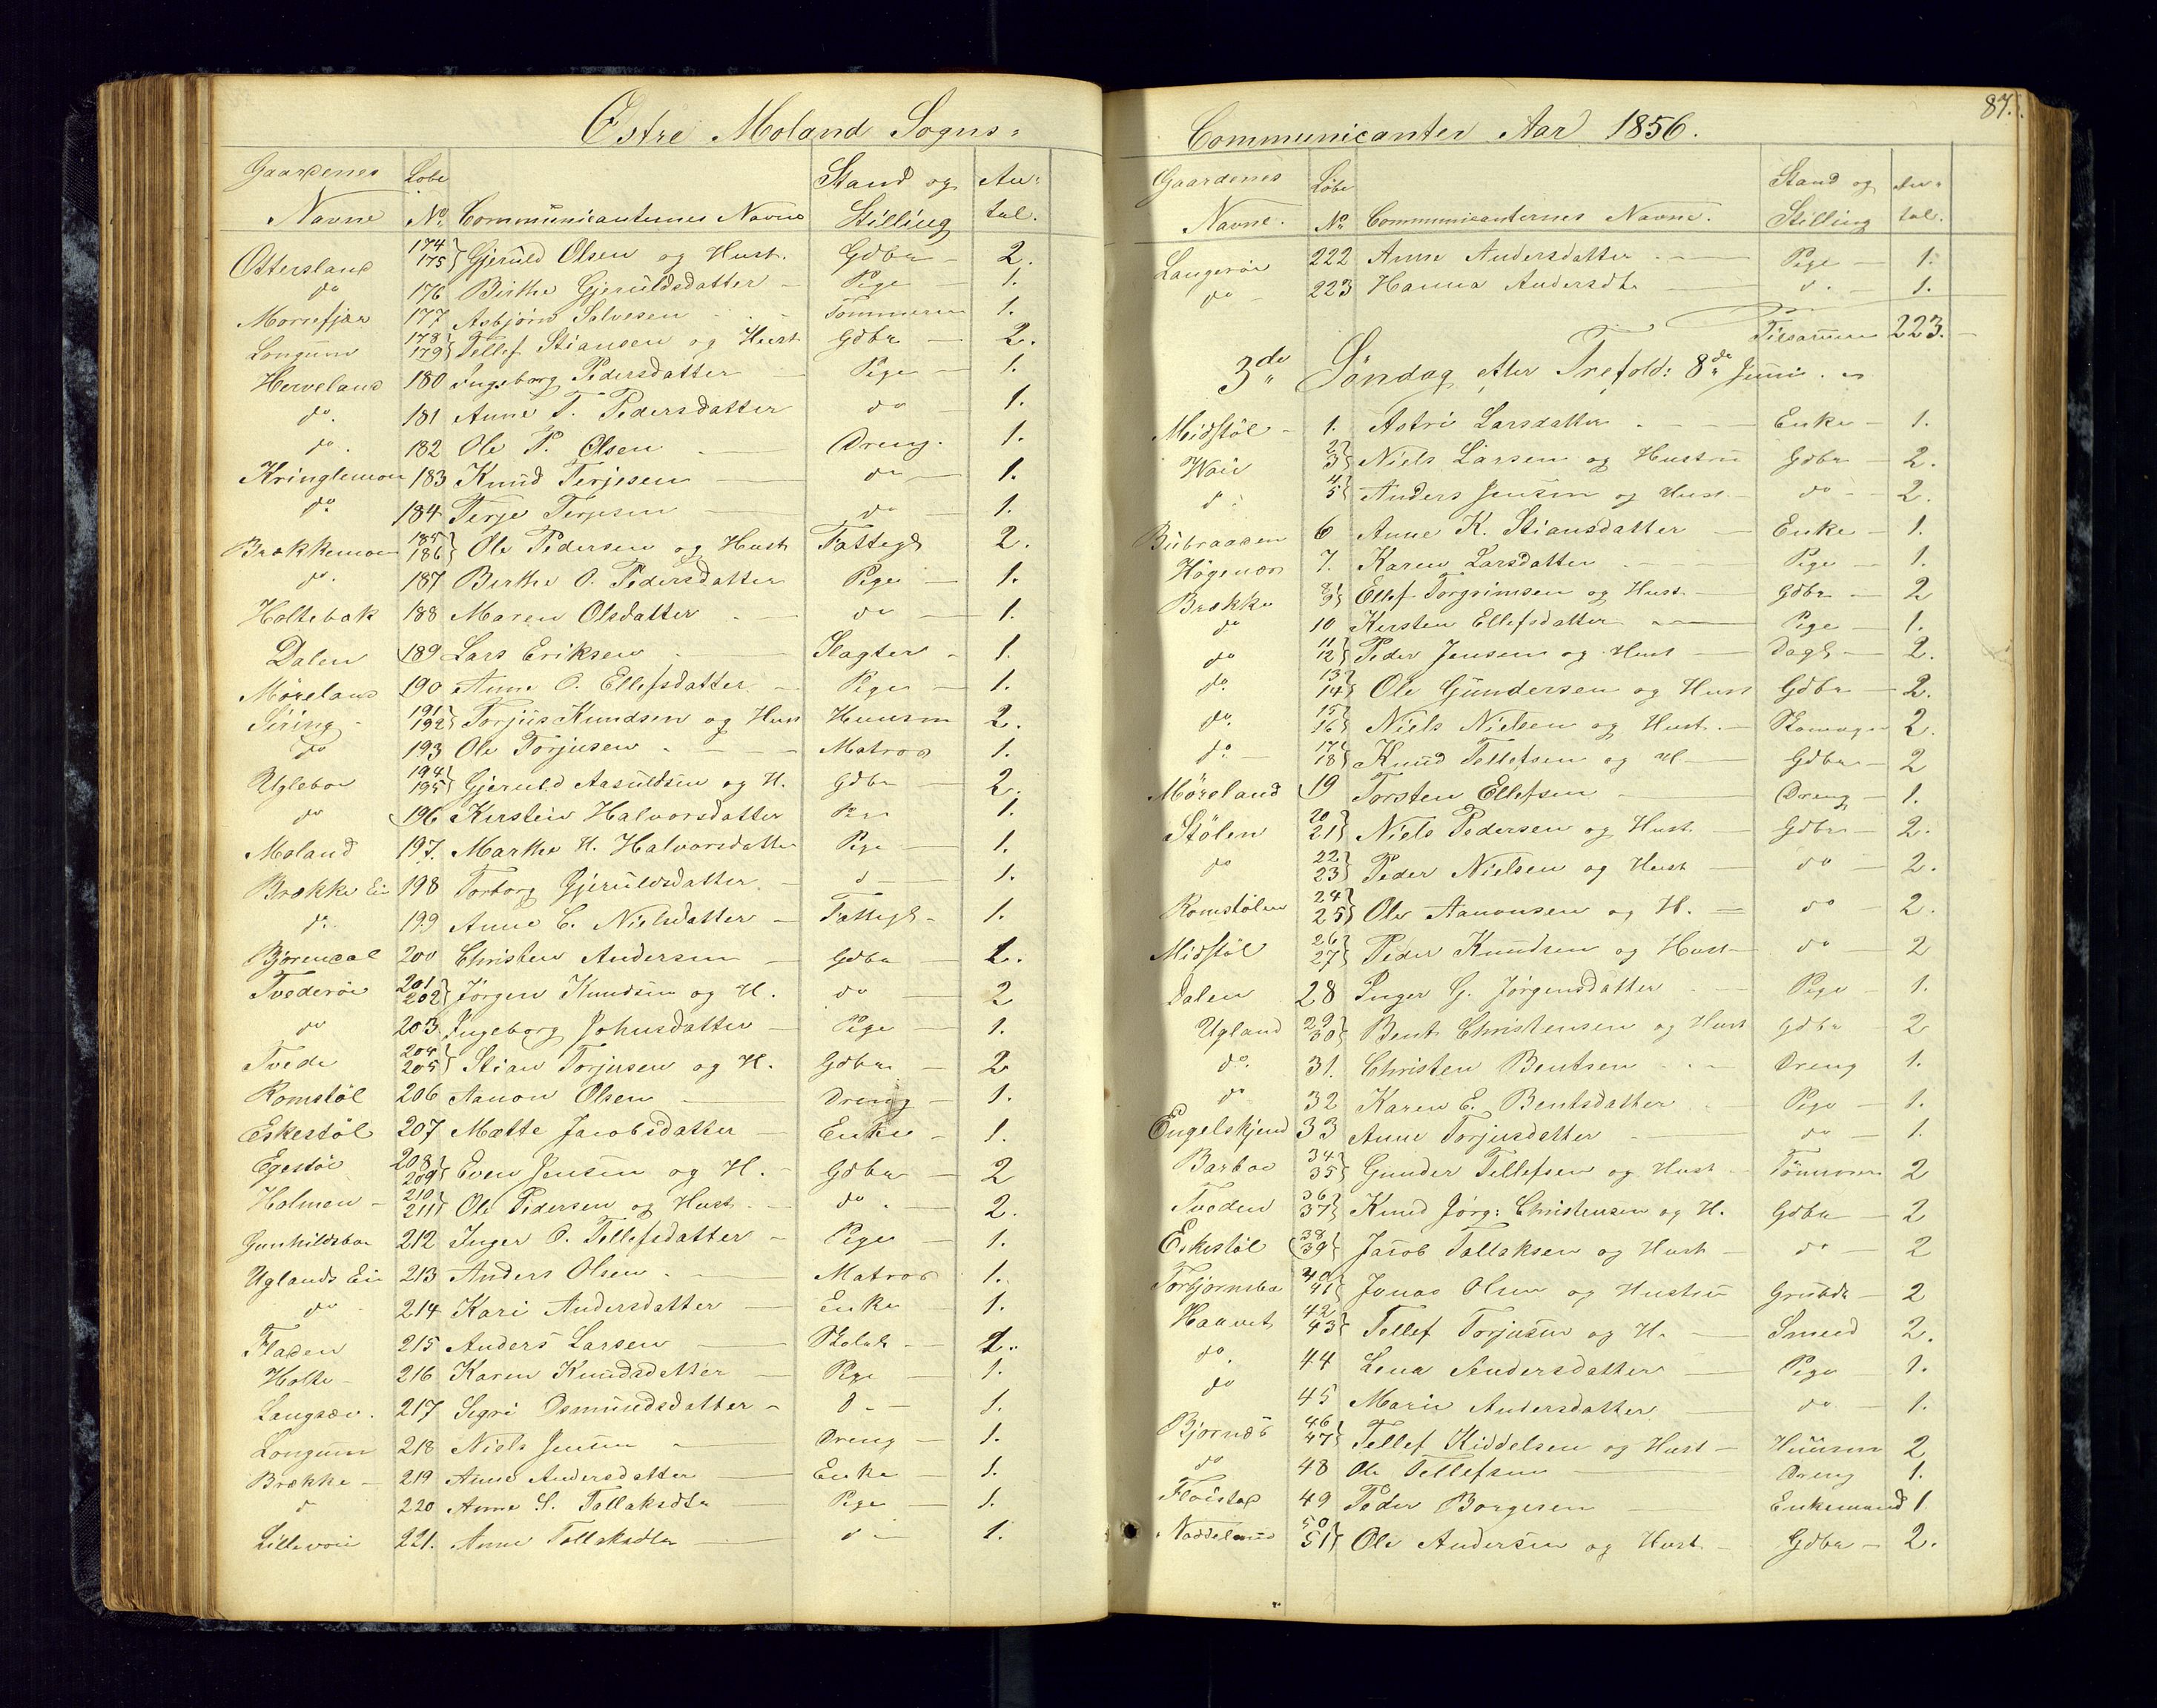 Østre Moland Sogns-
Gaardenes Løbe Stand og An-
Navne No. Communicanternes Navne Stilling tal.
Ottersland 174 175 Gjeruld Olsen og Hust. Gdbr 2.
do 176 Birthe Gjeruldsdatter Pige 1.
Morrefjær 177 Asbjørn Salvesen Tømmerm 1.
Longum 178 179 Tellef Stiansen og Hust Gdbr 2.
Herveland 180 Ingeborg Pedersdatter Pige 1.
do. 181 Anne T. Pedersdatter do 1.
do. 182 Ole P. Olsen Dreng. 1.
Kringlemoen 183 Knud Terjesen do 1.
do 184 Terje Terjesen do 1.
Brækkemoen 185 186 Ole Pedersen og Hust Fattegl 2.
do. 187 Birthe O. Pedersdatter Pige 1.
Holtebak 188 Maren Olsdatter do 1.
Dalen 189 Lars Eriksen Slagter 1.
Møreland 190 Anne O. Ellefsdatter Pige 1.
191 192 Torjus Knudsen og Hust Huusm 2.
do 193 Ole Torjusen Matros 1.
Ugleboe 194 195 Gjeruld Aasuldsen og H. Gdbr 2.
do 196 Kirstein Halvorsdatter 1.
Moland 197. Marthe H. Halvorsdatter Pige 1.
Brække Ei 198 Torborg Gjeruldsdatter d 1.
do. 199 Anne C. Nielsdatter Fattegl 1.
Bjørendal 200 Christen Andersen Gdbr 1.
Tvederøe 201 202 Jørgen Knudsen og H. do 2
do 203. Ingeborg Johnsdatter Pige 1.
Tvede 204 205 Stian Torjusen og H. Gdbr 2
Romstøl 206 Aanon Olsen Dreng 1.
Eskestøl 207 Mætte Jacobsdatter Enke 1.
Egestøl 208 209 Even Jensen og H. Gdbr 2
Holmen 210 211 Ole Pedersen og Hust. do 2.
Gunhildsboe 212 Inger O. Tellefsdatter Pige 1.
Uglands Eie 213 Anders Olsen Matros 1.
do 214 Kari Andersdatter Enke 1.
Fladen 215 Anders Larsen Skolel 1.
Holte 216 Karen Knudsdatter Pige 1.
Langsæe. 217 Segri Osmundsdatter d 1.
Longum 218 Niels Jensen Dreng 1.
Brække 219 Anne Andersdatter Enke 1.
d 220 Anne S. Tallaksdtr Pige 1.
Lillevoie 221. Anne Tallaksdtr d 1.
87.
Communicanter Aar 1856.
Gaardenes Løbe Stand og An-
Navne. No Communicanternes Navne. Stilling tal.
Langerøe 222 Anne Andersdatter Pige 1.
do 223 Hanna Andersdtr d. 1.
Tilsammen 223.
3de Søndag efter Trefold: 8de Juni.
Midstøl 1. Astri Larsdatter Enke 1.
Waie 2 3 Niels Larsen og Hustru Gdbr 2.
d. 4 5 Anders Jensen og Hust do 2.
Bubraaden 6 Anne K. Stiansdatter Enke 1.
Høgenæs 7. Karen Larsdatter Pige 1.
Brække 8 9 Ellef Torgrimsen og Hust. Gdbr 2
do 10 Kirsten Ellefsdatter Pige 1.
do 11 12 Peder Jensen og Hust Dagl 2.
do. 13 14 Ole Gundersen og Hust Gdbr 2.
do. 15 16 Niels Nielsen og Hust. Skomager 2.
do. 17 18 Knud Tellefsen og H Gdbr 2
Møreland 19 Torsten Ellefsen Dreng 1.
Stølen 20 21 Niels Pedersen og Hust. Gdbr 2.
do 22 23 Peder Nielsen og Hust do 2.
Romstølen 24 25 Ole Aanonsen og H. do 2.
Midstøl 26 27 Peder Knudsen og Hust do 2
Dalen 28 Inger G. Jørgensdatter Pige 1.
Ugland 29 30 Bent Christensen og Hust Gdbr 2
do. 31. Christen Bentsen Dreng 1.
do 32 Karen E. Bentsdatter Pige 1.
Engelskjend 33 Anne Torjusdatter do 1.
Barboe 34 35 Gunder Tellefsen og Hust Tømmerm 2
Tveden 36 37 Knud Jørg: Christensen og H. Gdbr 2
Eskestøl 38 39 Jacob Tallaksen og Hust do 2
Torbjørnsbo 40 41 Jonas Olsen og Hustru Grubda 2
Haavet 42 43 Tellef Torjusen og H. Smed 2.
do. 44 Lena Andersdatter Pige 1.
do 45 Marie Andersdatter do 1.
Bjørnæs 46 47 Tellef Kiddelsen og Hust Huusm 2
do 48 Ole Tellefsen Dreng 1.
Fløistad 49 Peder Borgesen Enkemand 1
Næddelund 50 51 Ole Andersen og Hust. Gdbr 2.